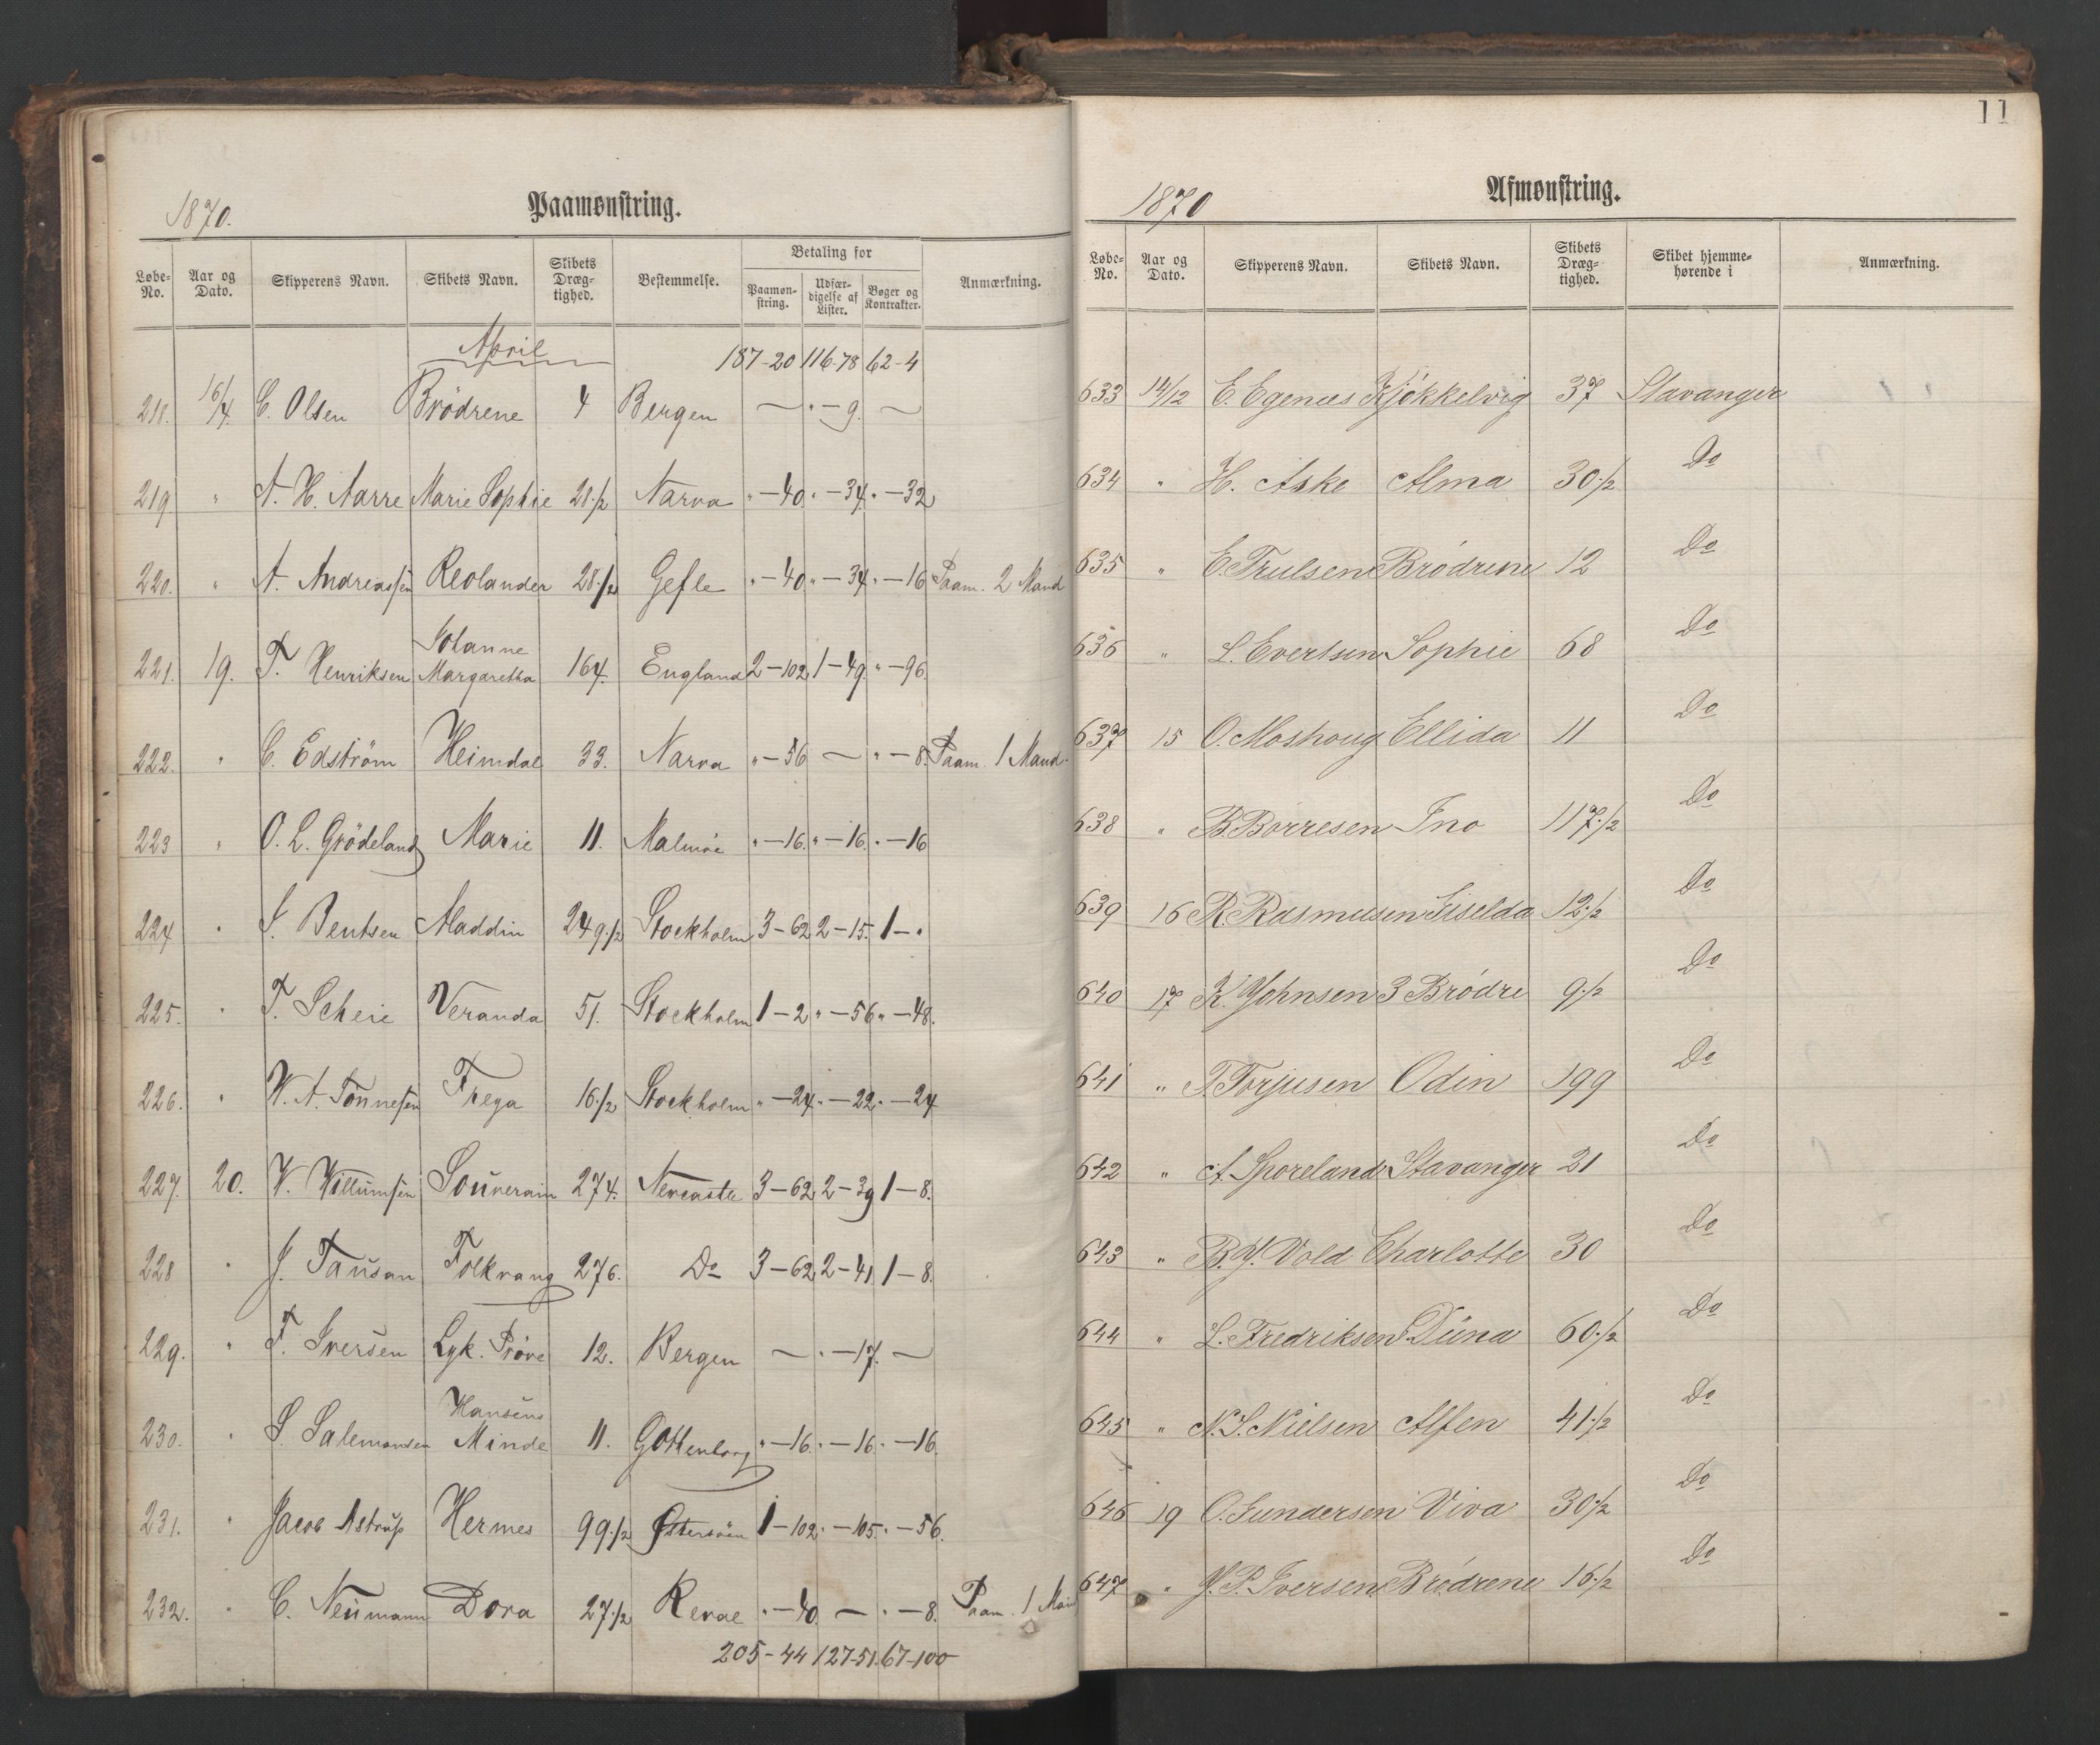 1870.
Paamønstring.
Løbe-No. Aar og Dato. Skipperens Navn. Skibets Navn. Skibets Drægtighed. Bestemmelse. Betaling for Paamønstring. Udfærdigelse af Lister. Bøger og Kontrakter. Anmærkning.
April 187-20 116-78 62-4
218. 16/4. C. Olsen Brödrene 4 Bergen — " - 9. —
219 " A. H. Aarre Marie Sophie 28 1/2 Narva " - 40. " - 34. " - 32
220. " A. Andreassen Reolander 28 1/2 Gefle " - 40. " - 34. " - 16 Paam. 2 Mand
221. 19. T. Henriksen Johanne Margaretha 164. England 2 - 102. 1 - 49. " - 96.
222. " C. Edström Heimdal 33. Narva " - 56 — " - 8. Paam. 1 Mand.
223 " O. L. Grödeland Marie 11. Malmöe " - 16. " - 16. " - 16
224 " S. Bentsen Aladdin 249 1/2 Stockholm 3 - 62 2 - 15. 1 - "
225. " T. Scheie Veranda 51. Stockholm 1 - 2 " - 56 " - 48.
226. " W. A. Tönnesen Freya 16 1/2 Stockholm " - 24. " - 22. " - 24
227. 20. W. Willumsen Souverain 274. Newcastle 3 - 62 2 - 39 1 - 8.
228 " J. Tausan Folkvang 276. Do 3 - 62 2 - 41. 1 - 8.
229. " T. Iversen Lyk. Pröve 12. Bergen — " - 17. —
230. " S. Salemonsen Hansens Minde 11. Gottenborg " - 16. " - 16. " - 16.
231. " Jacob Astrup Hermes 99 1/2 Østersöen 1 - 102. " - 105. " - 56.
232. " C. Neumann Dora 27 1/2 Reval " - 40. — " - 8. Paam. 1 Man
205-44 127-51. 67-100
11
1870
Afmønstring.
Løbe-No. Aar og Dato. Skipperens Navn. Skibets Navn. Skibets Drægtighed. Skibet hjemmehørende i Anmærkning.
633 14/12 E. Egenæs Kjökkelvig 37 Stavanger
634 " H. Aske Alma 30 1/2 Do
635 " E. Trulsen Brödrene 12 Do
636 " L. Evertsen Sophie 68 Do
637 15 O. Moshoug Ellida 11 Do
638 " B. Borresen Ino 117 1/2 Do
639 16 R. Rasmussen Giselda 12 1/2 Do
640 17 K. Johnsen 3 Brödre 9 1/2 Do
641 " T. Torjusen Odin 199 Do
642 " A. Sporeland Stavanger 21 Do
643 " B. J. Vold Charlotte 30 Do
644 " L. Fredriksen Düna 60 1/2 Do
645 " N. S. Nielsen Alfen 41 1/2 Do
646 19 O. Gundersen Viva 30 1/2 Do
647 " J. P. Iversen Brödrene 16 1/2 Do